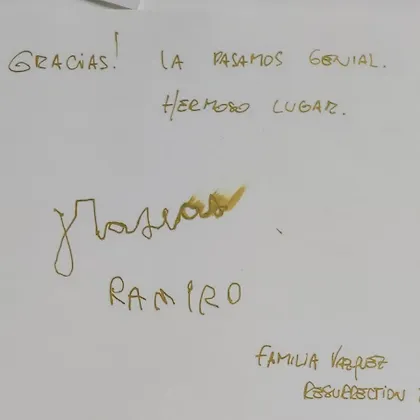 GRACIAS! LA PASAMOS GENIAL.
HERMOSO LUGAR.
RAMIRO
FAMILIA VAZQUEZ
RESURRECTION